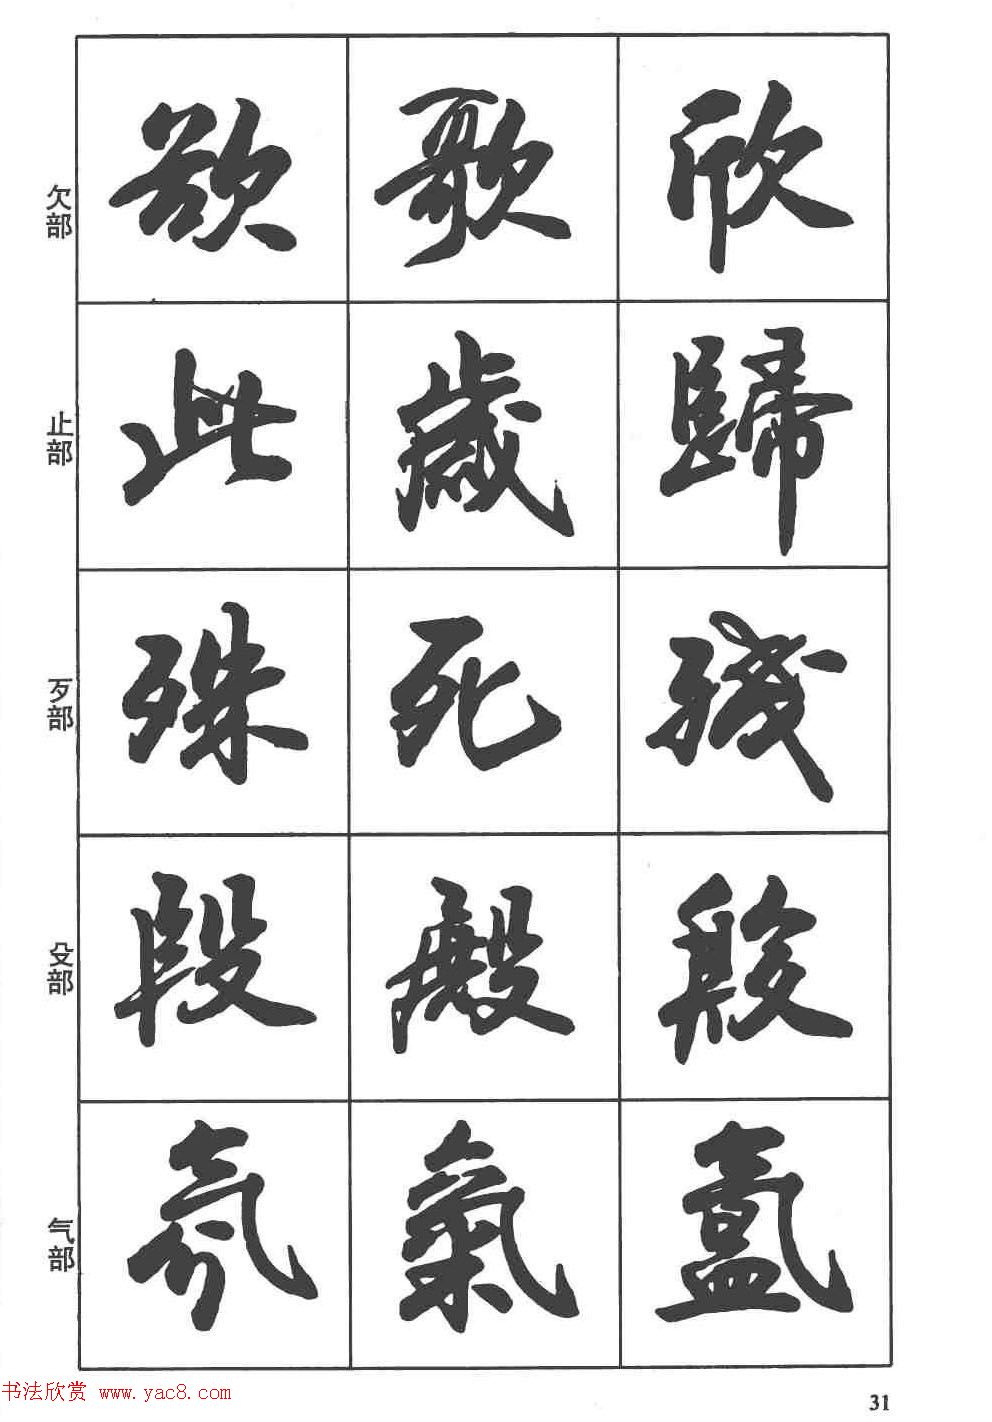 欠部
欲 歌 欣
止部
此 歲 歸
歹部
殊 死 殘
殳部
段 殿 毅
气部
氛 氣 氳
书法欣赏 www.yac8.com
31